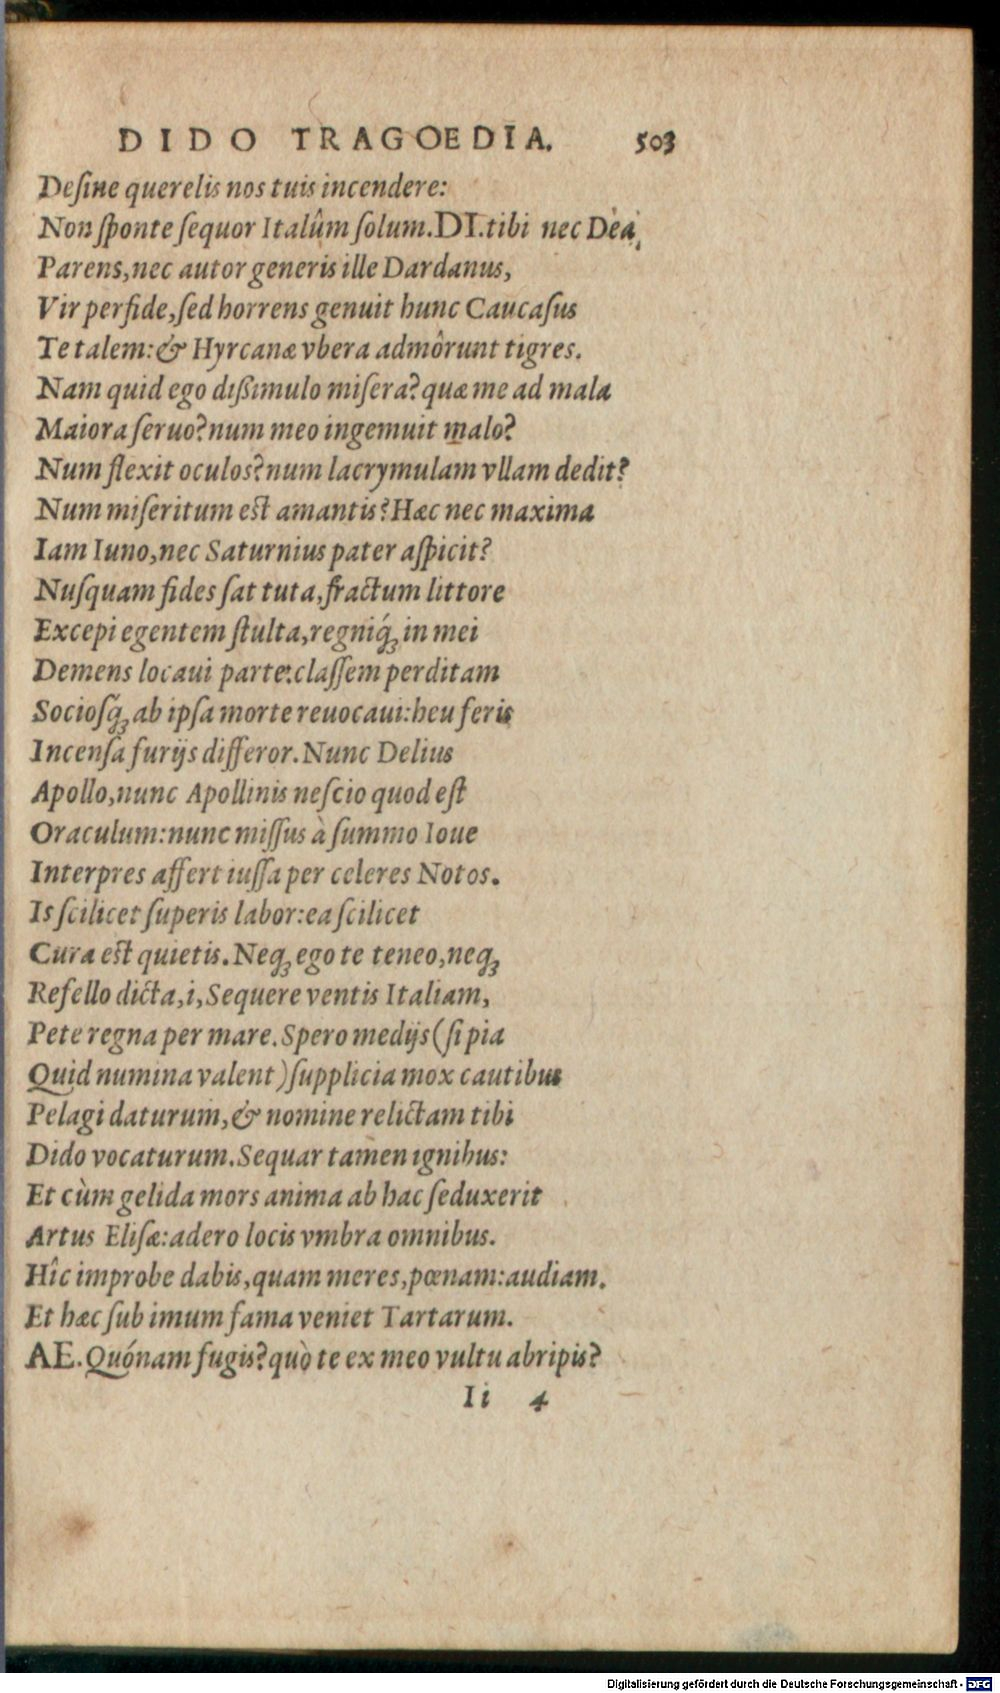 DIDO TRAGOEDIA. 503
Deſine querelis nos tuis incendere:
Non ſponte ſequor Italûm ſolum. DI. tibi nec Dea
Parens, nec autor generis ille Dardanus,
Vir perfide, ſed horrens genuit hunc Caucaſus
Te talem: & Hyrcanæ vbera admôrunt tigres.
Nam quid ego dißimulo miſera? quæ me ad mala
Maiora ſeruo? num meo ingemuit malo?
Num flexit oculos? num lacrymulam vllam dedit?
Num miſeritum est amantis? Hæc nec maxima
Iam Iuno, nec Saturnius pater aſpicit?
Nuſquam fides ſat tuta, fractum littore
Excepi egentem ſtulta, regniq́ꝫ in mei
Demens locaui parte: claſſem perditam
Socioſq́ꝫ ab ipſa morte reuocaui: heu feris
Incenſa furijs differor. Nunc Delius
Apollo, nunc Apollinis neſcio quod eſt
Oraculum: nunc miſſus à ſummo Ioue
Interpres affert iuſſa per celeres Notos.
Is ſcilicet ſuperis labor: ea ſcilicet
Cura est quietis. Neqꝫ ego te teneo, neqꝫ
Refello dicta, i, Sequere ventis Italiam,
Pete regna per mare. Spero medijs (ſi pia
Quid numina valent) ſupplicia mox cautibus
Pelagi daturum, & nomine relictam tibi
Dido vocaturum. Sequar tamen ignibus:
Et cùm gelida mors anima ab hac ſeduxerit
Artus Eliſæ: adero locis vmbra omnibus.
Hîc improbe dabis, quam meres, pœnam: audiam.
Et hæc ſub imum fama veniet Tartarum.
AE. Quónam fugis? quò te ex meo vultu abripis?
Ii 4
Digitalisierung gefördert durch die Deutsche Forschungsgemeinschaft - DFG